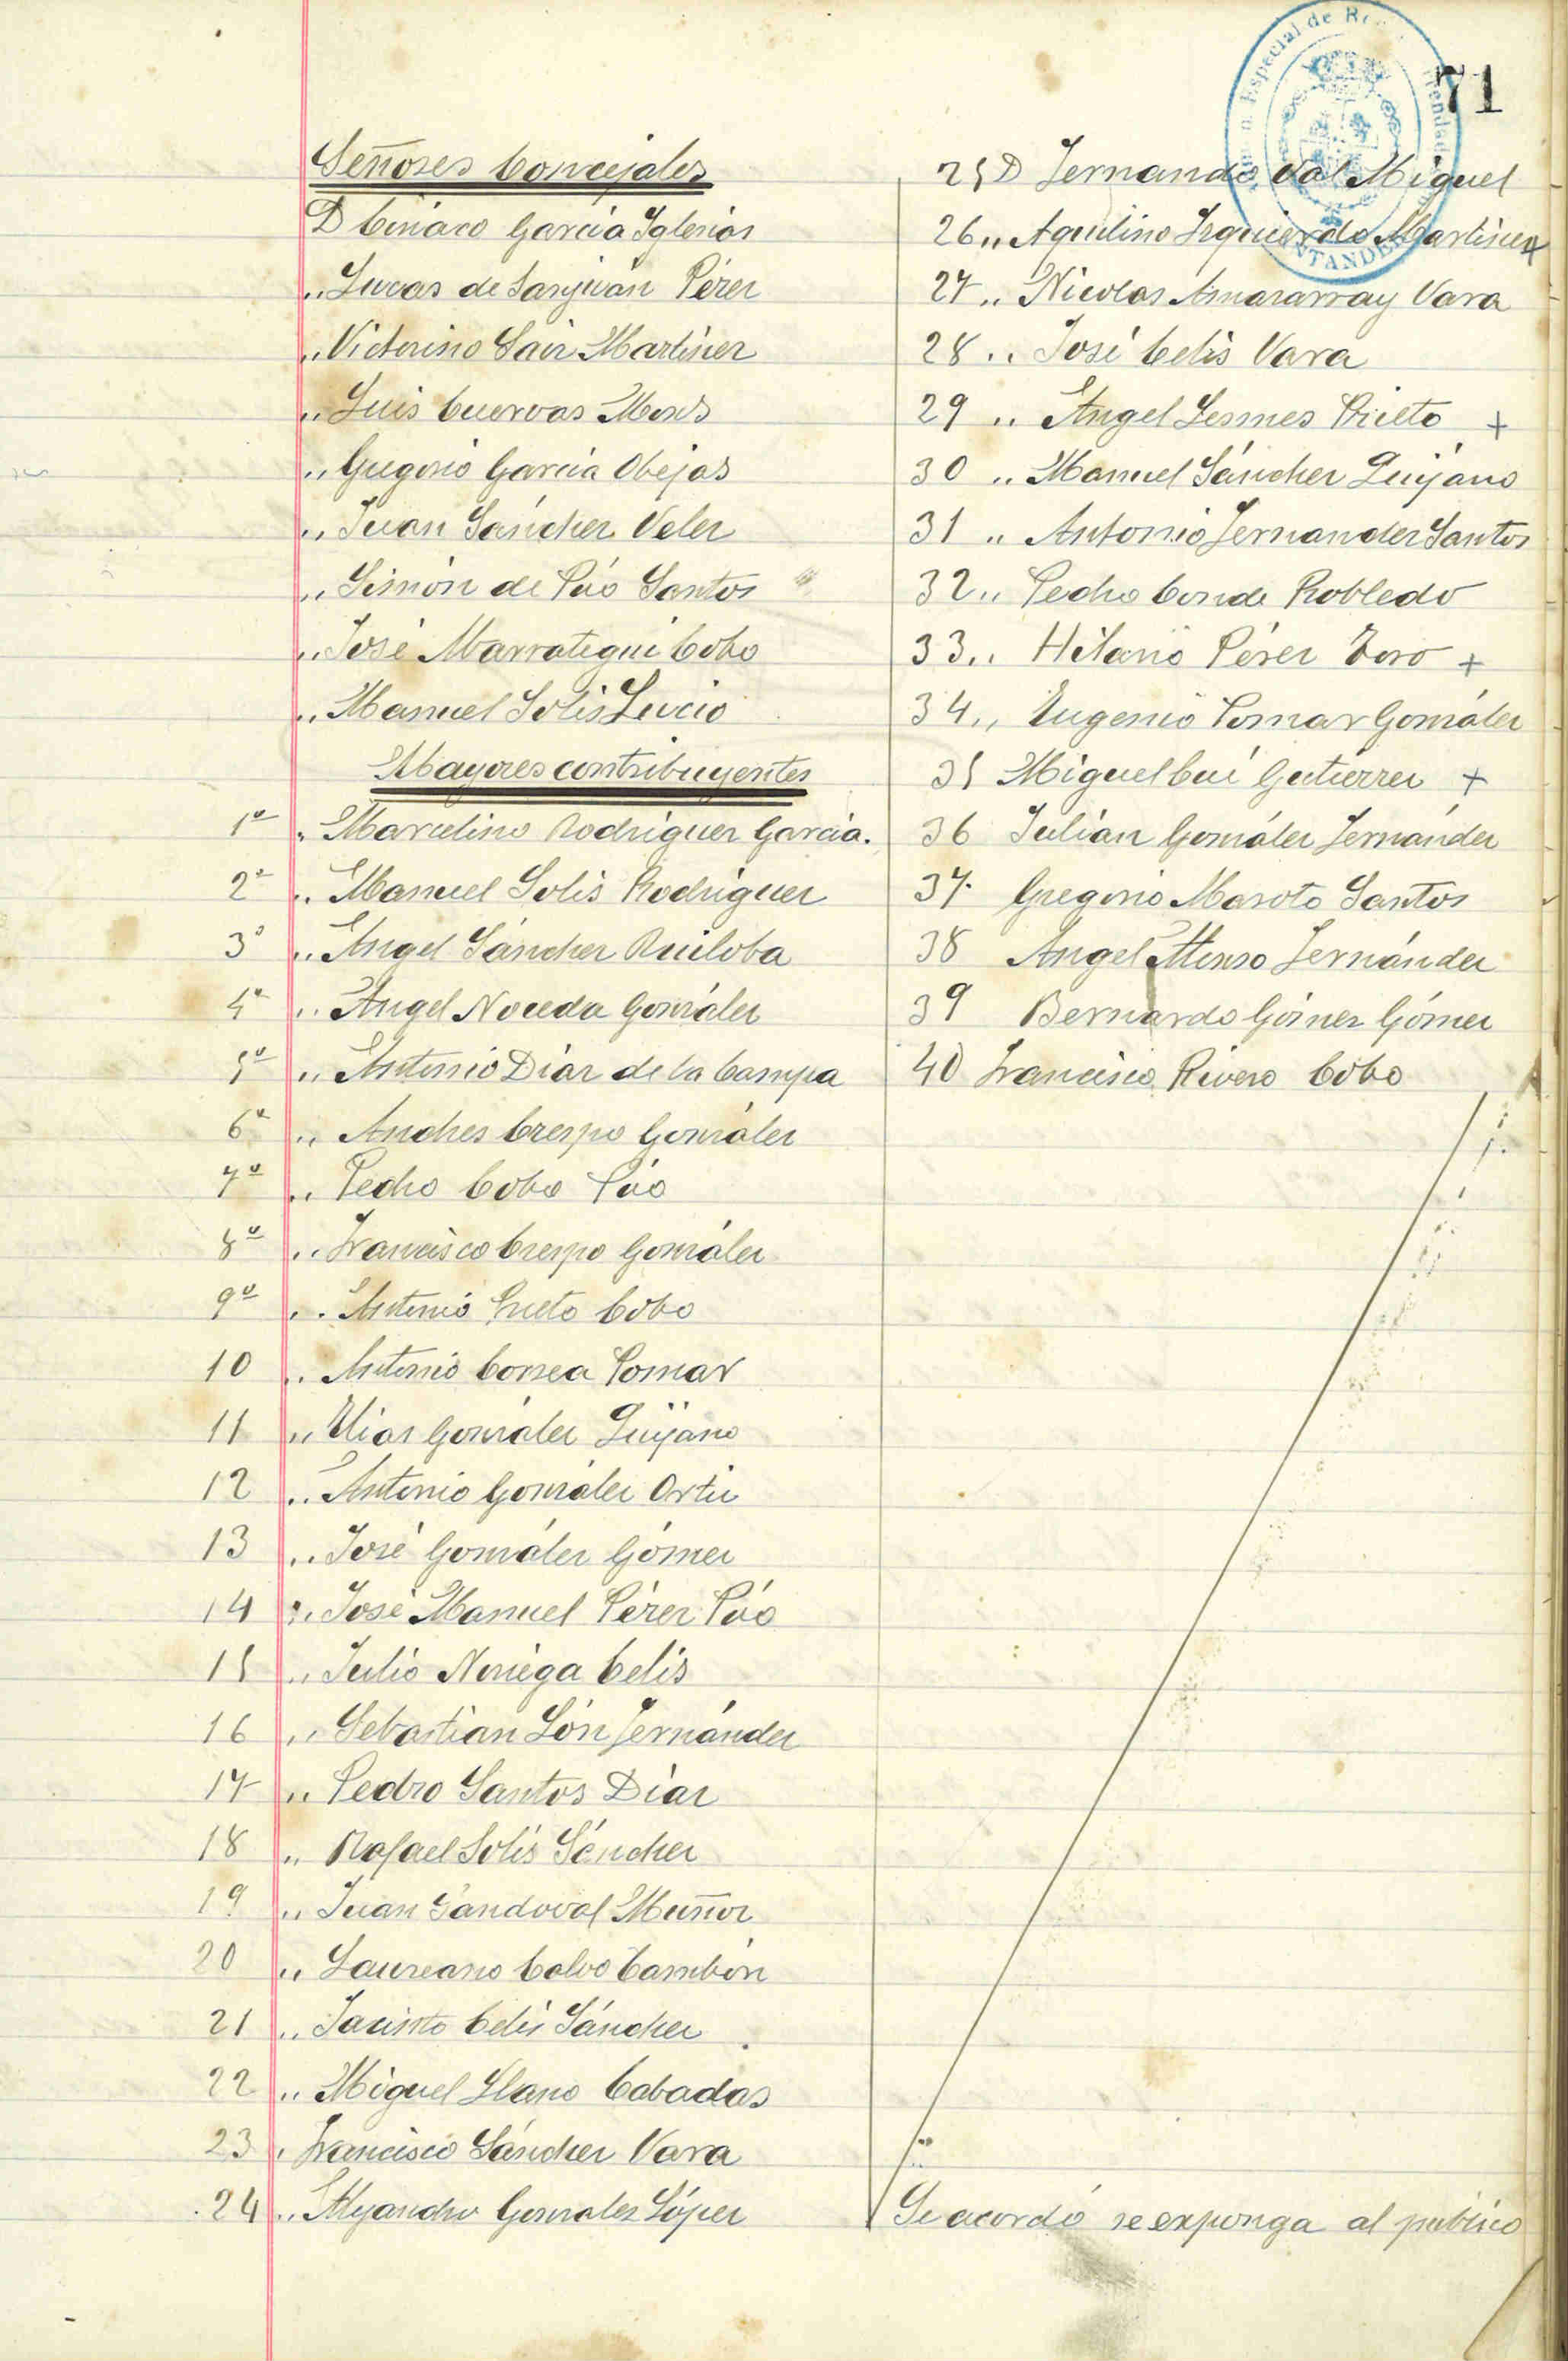 71
Señores Concejales
D Genaro Garcia Iglesias
,, Lucas de Sanjuán Pérez
,, Victorino Saiz Martinez
,, Luis Cuervas Mons
,, Gregorio Garcia Obejas
,, Juan Sánchez Velez
,, Simón de Púo Santos
,, José Marrategui Cobo
,, Manuel Solis Lucio
Mayores contribuyentes
1º ,, Marcelino Rodriguez Garcia.
2º ,, Manuel Solis Rodriguez
3º ,, Angel Sánchez Ruiloba
4º ,, Angel Noceda González
5º ,, Antonio Diaz de la Campa
6º ,, Andres Crespo González
7º ,, Pedro Cobo Púo
8º ,, Francisco Crespo González
9º ,, Antonio Cueto Cobo
10 ,, Antonio Correa Pomar
11 ,, Elias González Quijano
12 ,, Antonio González Ortiz
13 ,, José González Gómez
14 ,, José Manuel Pérez Púo
15 ,, Julio Noriega Celis
16 ,, Sebastian Són Fernández
17 ,, Pedro Santos Diaz
18 ,, Rafael Solis Sánchez
19 ,, Juan Sandoval Muñoz
20 ,, Laureano Calvo Cambón
21 ,, Jacinto Celis Sánchez
22 ,, Miguel Llano Cabadas
23 ,, Francisco Sánchez Vara
24 ,, Alejandro Gonzalez López
25 D Fernando Val Miguel
26 ,, Aquilino Izquierdo Martinez
27 ,, Nicolas Amazarray Vara
28 ,, José Celis Vara
29 ,, Angel Lesmes Prieto +
30 ,, Manuel Sánchez Quijano
31 ,, Antonio Fernandez Santos
32 ,, Pedro Conde Robledo
33 ,, Hilario Pérez Toro +
34 ,, Eugenio Pomar González
35 Miguel Cué Gutierrez +
36 Julian González Fernández
37. Gregorio Maroto Santos
38 Angel Alonso Fernández
39 Bernardo Gómez Gómez
40 Francisco Rivero Cobo
Se acordó se exponga al publico